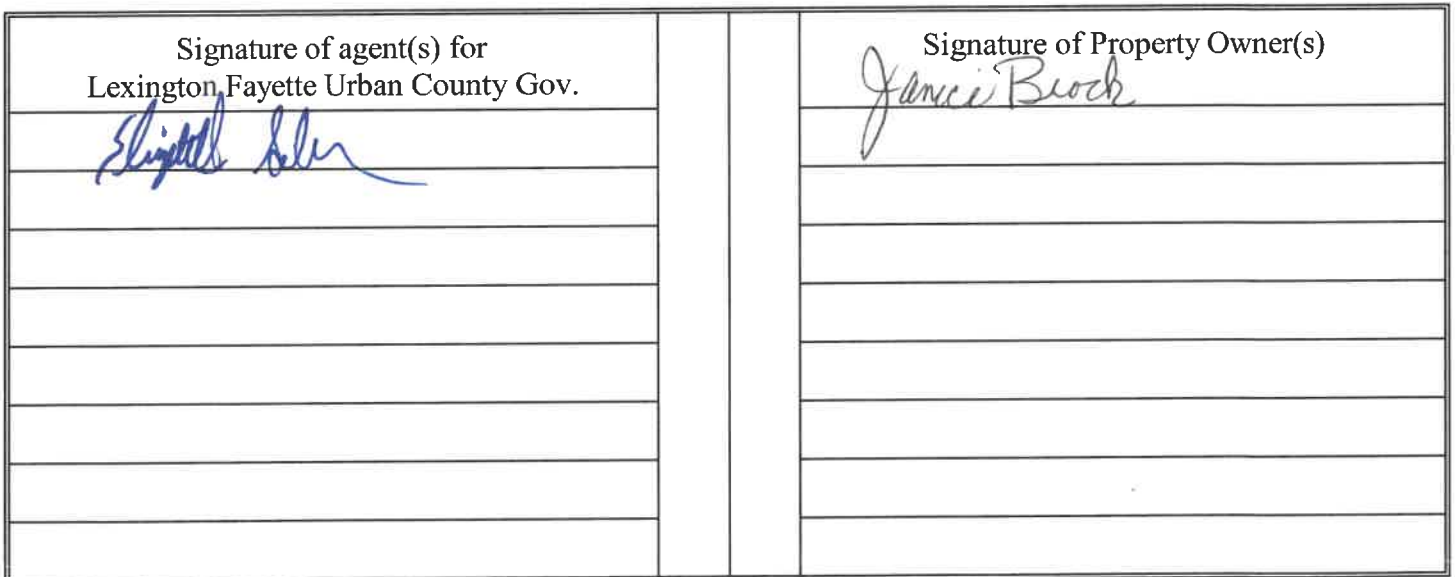 Signature of agent(s) for
Lexington Fayette Urban County Gov.
Elizabeth
Signature of Property Owner(s)
Janice Brock